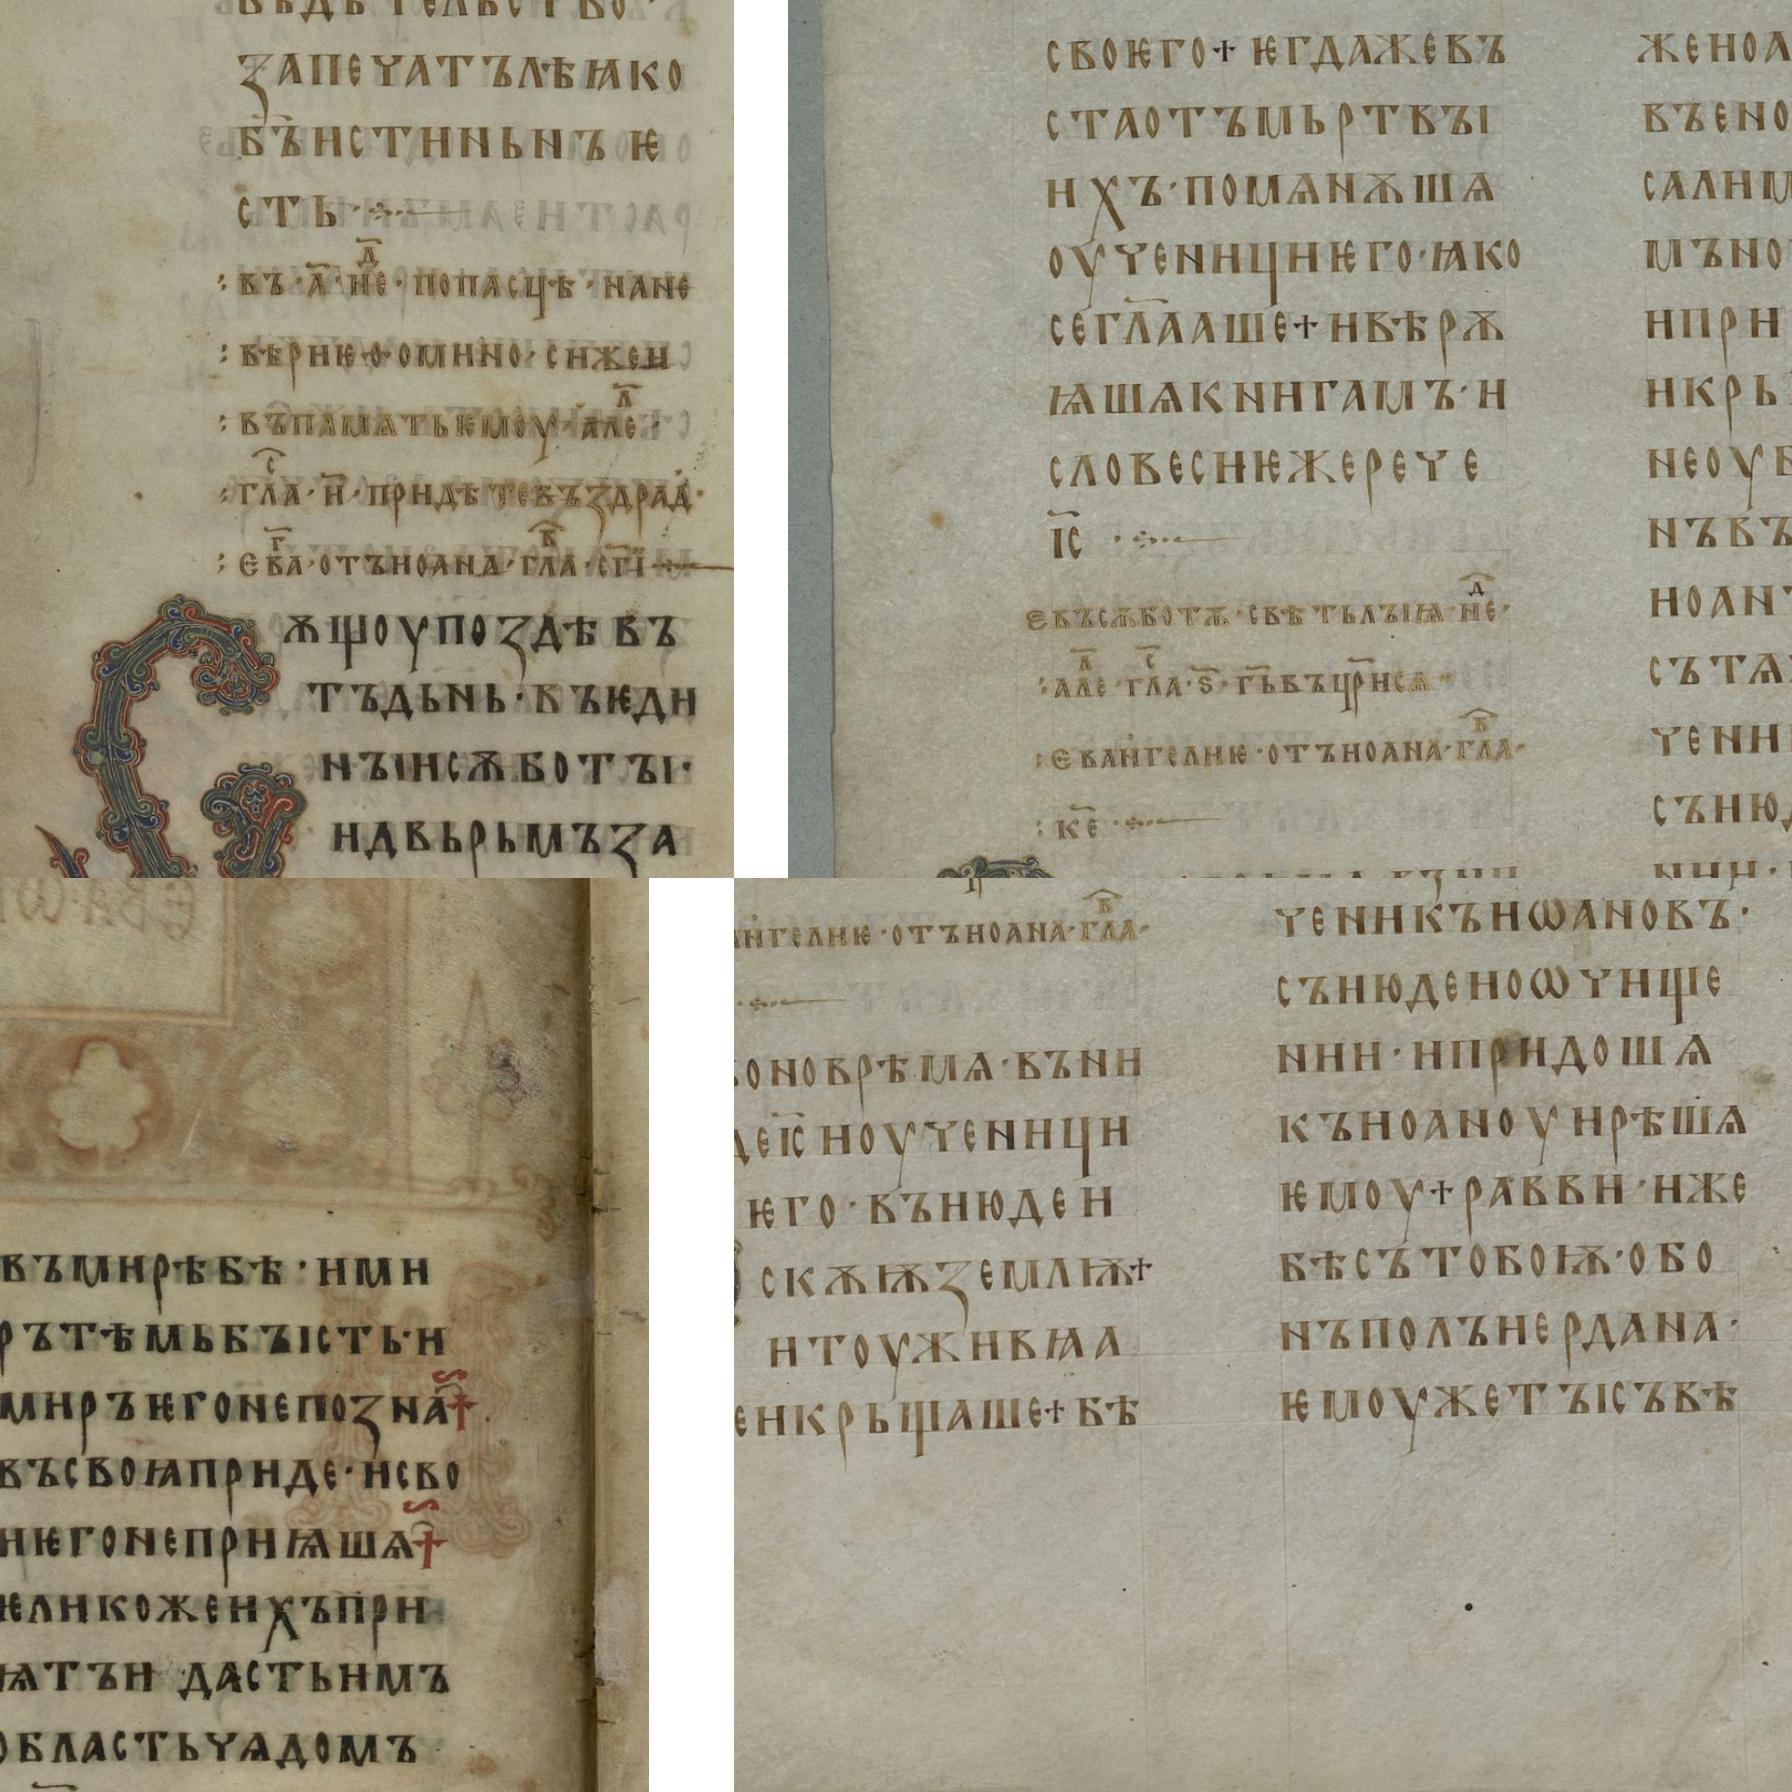 ВѢДѢТЕЛЬСТВО·
ЗАПЕЧАТЪЛѢꙖКО
Б҃ЪИСТИНЬНЪѤ
СТЬ·
:ВЪ·А҃·НЕ·ПОПАСЦѢ·НАНЕ
:ВѢРИѤ·О·ОМИНО·СИЖЕИ
:ВЪПАМѦТЬѤМОУ·АЛЕ·
:ГЛА·И҃·ПРИДѢТЕВЪЗДРАД·
:ЕВА·ОТЪИОАНА·ГЛА·СГ҃І
СѪЩОУПОЗДѢВЪ
ТЪДЬНЬ·ВЪѤДИ
НЪІИСѪБОТЪІ·
ИДВЬРЬМЪЗА
СВОѤГО+ѤГДАЖЕВЪ
СТАОТЪМЬРТВЪІ
ИХЪ·ПОМѦНѪШѦ
ОУЧЕНИЦИѤГО·ꙖКО
СЕГЛ҃ААШЕ+ИВѢРѪ
ꙖШѦКНИГАМЪ·И
СЛОВЕСИѤЖЕРЕЧЕ
І҃С
ЕВЪСѪБОТѪ·СВѢТЬЛЪІꙖ·НЕ·
:АЛЕ·ГЛА·Ѕ҃·Г҃ЬВЪЦР҃ИСѦ
:ЕВАНГЕЛИѤ·ОТЪИОАНА·ГЛА·
:К҃Е
ЖЕНОА
ВЪЕНО
САЛИМ
МЪНО
ИПРИ
ИКРЬ
НЕОУБ
НЪВЪ
ИОАН
СЪТѦ
ЧЕНИ
СЪИЮД
НИИ·
ВЪМИРѢБѢ·ИМИ
РЪТѢМЬБЪІСТЬ·И
МИРЪѤГОНЕПОЗНА+
ВЪСВОꙖПРИДЕ·ИСВО
ИѤГОНЕПРИꙖШѦ+
ѤЛИКОЖЕИХЪПРИ
ѨТЪИДАСТЬИМЪ
ОБЛАСТЬЧѦДОМЪ
АНГЕЛИѤ·ОТЪИОАНА·ГЛА·
ОНОВРѢМѦ·ВЪНИ
ДЕІ҃СИОУЧЕНИЦИ
ѤГО·ВЪИЮДЕИ
СКѪѬЗЕМЛѬ+
ИТОУЖИВꙖА
ЕИКРЬЩАШЕ+БѢ
ЧЕНИКЪИѠАНОВЪ·
СЪИЮДЕИОѠЧИЩЕ
НИИ·ИПРИДОШѦ
КЪИОАНОУИРѢШѦ
ѤМОУ+РАВВИ·ИЖЕ
БѢСЪТОБОѬ·ОБО
НЪПОЛЪИЕРДАНА·
ѤМОУЖЕТЪІСЪВѢ